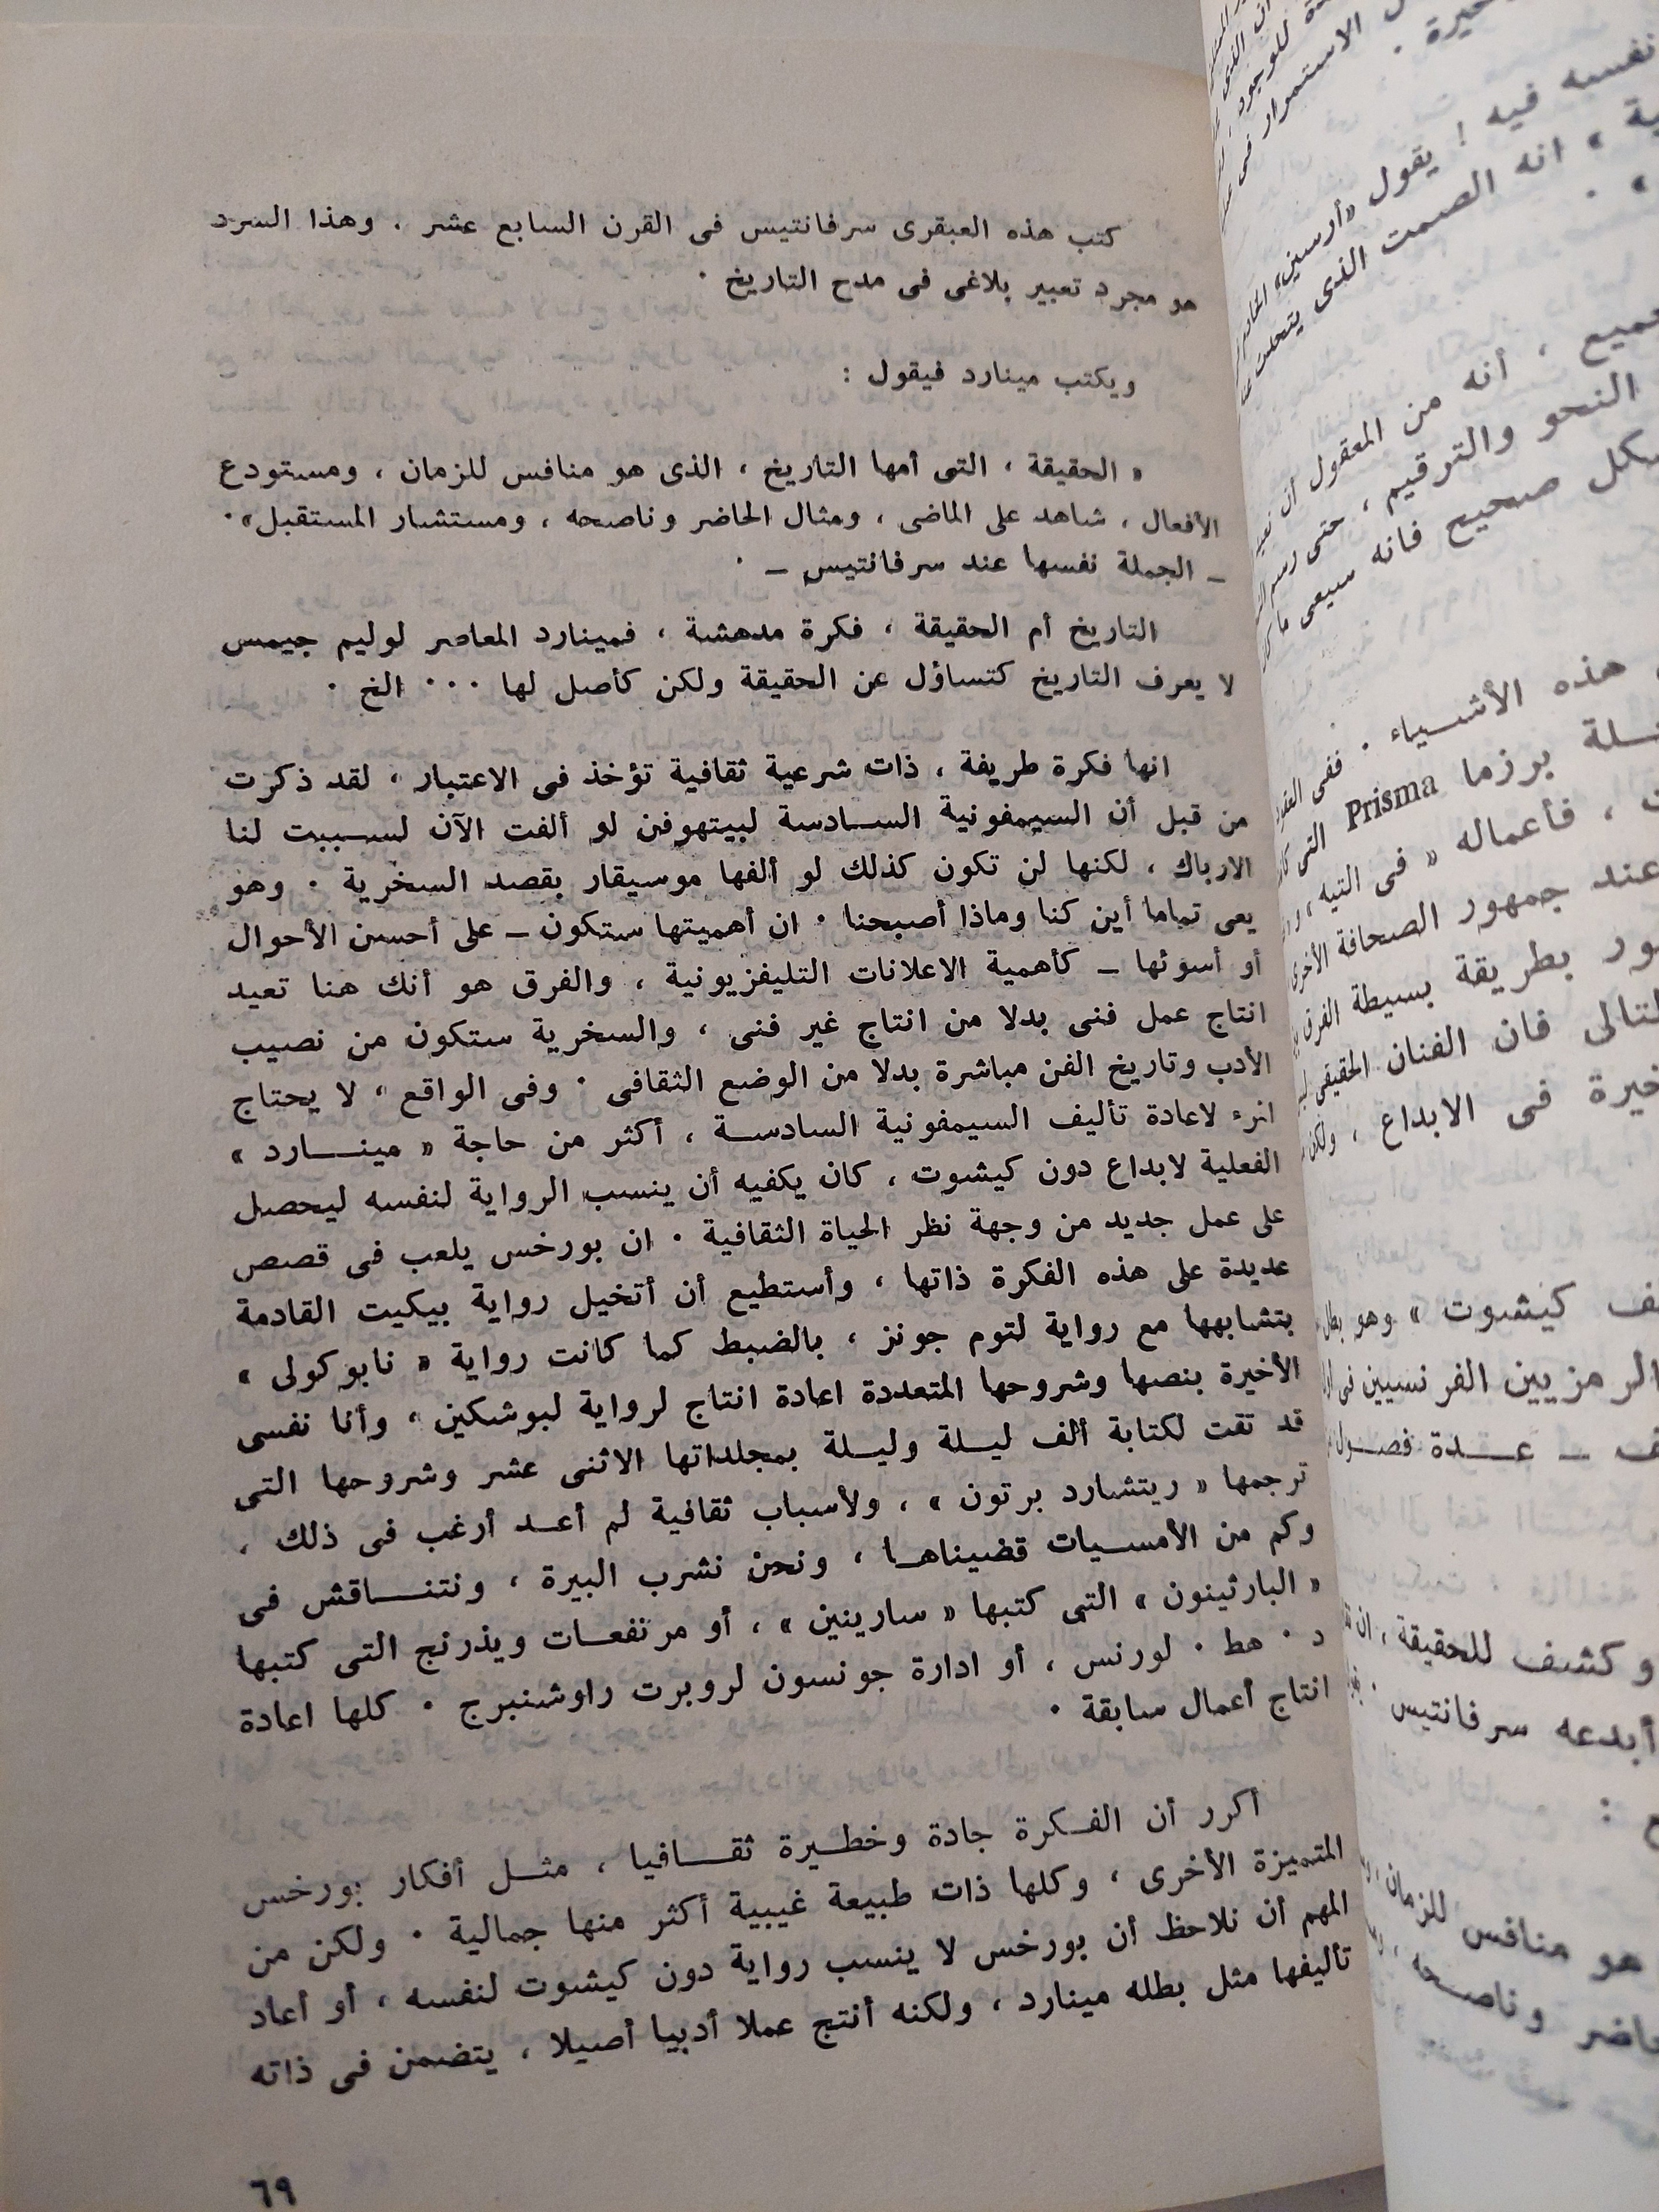 كتب هذه العبقرى سرفانتيس فى القرن السابع عشر ، وهذا السرد
هو مجرد تعبير بلاغى فى مدح التاريخ ٠
ويكتب مينارد فيقول :
« الحقيقة ، التى أمها التاريخ ، الذى هو منافس للزمان ، ومستودع
الأفعال ، شاهد على الماضى ، ومثال الحاضر وناصحه ، ومستشار المستقبل» ٠
ــ الجملة نفسها عند سرفانتيس ــ ٠
التاريخ أم الحقيقة ، فكرة مدهشة ، فمينارد المعاصر لوليم جيمس
لا يعرف التاريخ كتساؤل عن الحقيقة ولكن كأصل لها ٠٠٠ الخ ٠
انها فكرة طريفة ، ذات شرعية ثقافية تؤخذ فى الاعتبار ، لقد ذكرت
من قبل أن السيمفونية السادسة لبيتهوفن لو ألفت الآن لسببت لنا
الارباك ، لكنها لن تكون كذلك لو ألفها موسيقار بقصد السخرية ٠ وهو
يعى تماما أين كنا وماذا أصبحنا ٠ ان أهميتها ستكون ــ على أحسن الأحوال
أو أسوئها ــ كأهمية الاعلانات التليفزيونية ، والفرق هو أنك هنا تعيد
انتاج عمل فنى بدلا من انتاج غير فنى ، والسخرية ستكون من نصيب
الأدب وتاريخ الفن مباشرة بدلا من الوضع الثقافى ٠ وفى الواقع ، لا يحتاج
لاعادة تأليف السيمفونية السادسة ، أكثر من حاجة « مينارد »
الفعلية لابداع دون كيشوت ، كان يكفيه أن ينسب الرواية لنفسه ليحصل
على عمل جديد من وجهة نظر الحياة الثقافية ٠ ان بورخس يلعب فى قصص
عديدة على هذه الفكرة ذاتها ، وأستطيع أن أتخيل رواية بيكيت القادمة
بتشابهها مع رواية لتوم جونز ، بالضبط كما كانت رواية « نابوكولى »
الأخيرة بنصها وشروحها المتعددة اعادة انتاج لرواية لبوشكين ، وأنا نفسى
قد تقت لكتابة ألف ليلة وليلة بمجلداتها الاثنى عشر وشروحها التى
ترجمها « ريتشارد برتون » ، ولأسباب ثقافية لم أعد أرغب فى ذلك ،
وكم من الأمسيات قضيناها ، ونحن نشرب البيرة ، ونتناقش فى
« البارثينون » التى كتبها « سارينين » ، أو مرتفعات ويذرنج التى كتبها
د ٠ هط ٠ لورنس ، أو ادارة جونسون لروبرت راوشنبرج ٠ كلها اعادة
انتاج أعمال سابقة ٠
أكرر أن الفكرة جادة وخطيرة ثقافيا ، مثل أفكار بورخس
المتميزة الأخرى ، وكلها ذات طبيعة غيبية أكثر منها جمالية ٠ ولكن من
المهم أن نلاحظ أن بورخس لا ينسب رواية دون كيشوت لنفسه ، أو أعاد
تأليفها مثل بطله مينارد ، ولكنه أنتج عملا أدبيا أصيلا ، يتضمن فى ذاته
٦٩
نفسه فيه ! يقول «أرسين»
انه الصمت الذى
أنه من المعقول أن
النحو والترقيم ، حتى
صحيح فانه سيعى
هذه الأشياء ٠ ففى
برزما Prisma التى
، فأعماله « فى التيه ،
عند جمهور الصحافة الأخرى
بطريقة بسيطة الفرق
فان الفنان الحقيقى
فى الابداع ، ولكن
كيشوت » وهو بطل
الرمزيين الفرنسيين فى
ــ عدة فصول
وكشف للحقيقة ، ان
أبدعه سرفانتيس ٠
هو منافس للزمان ،
وناصحه ،